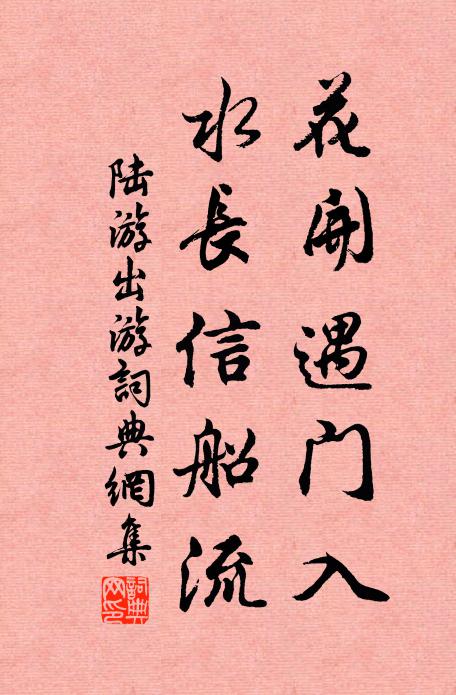 花開遇门入
水長信船流
陆游出游詞典網集
詞典网印